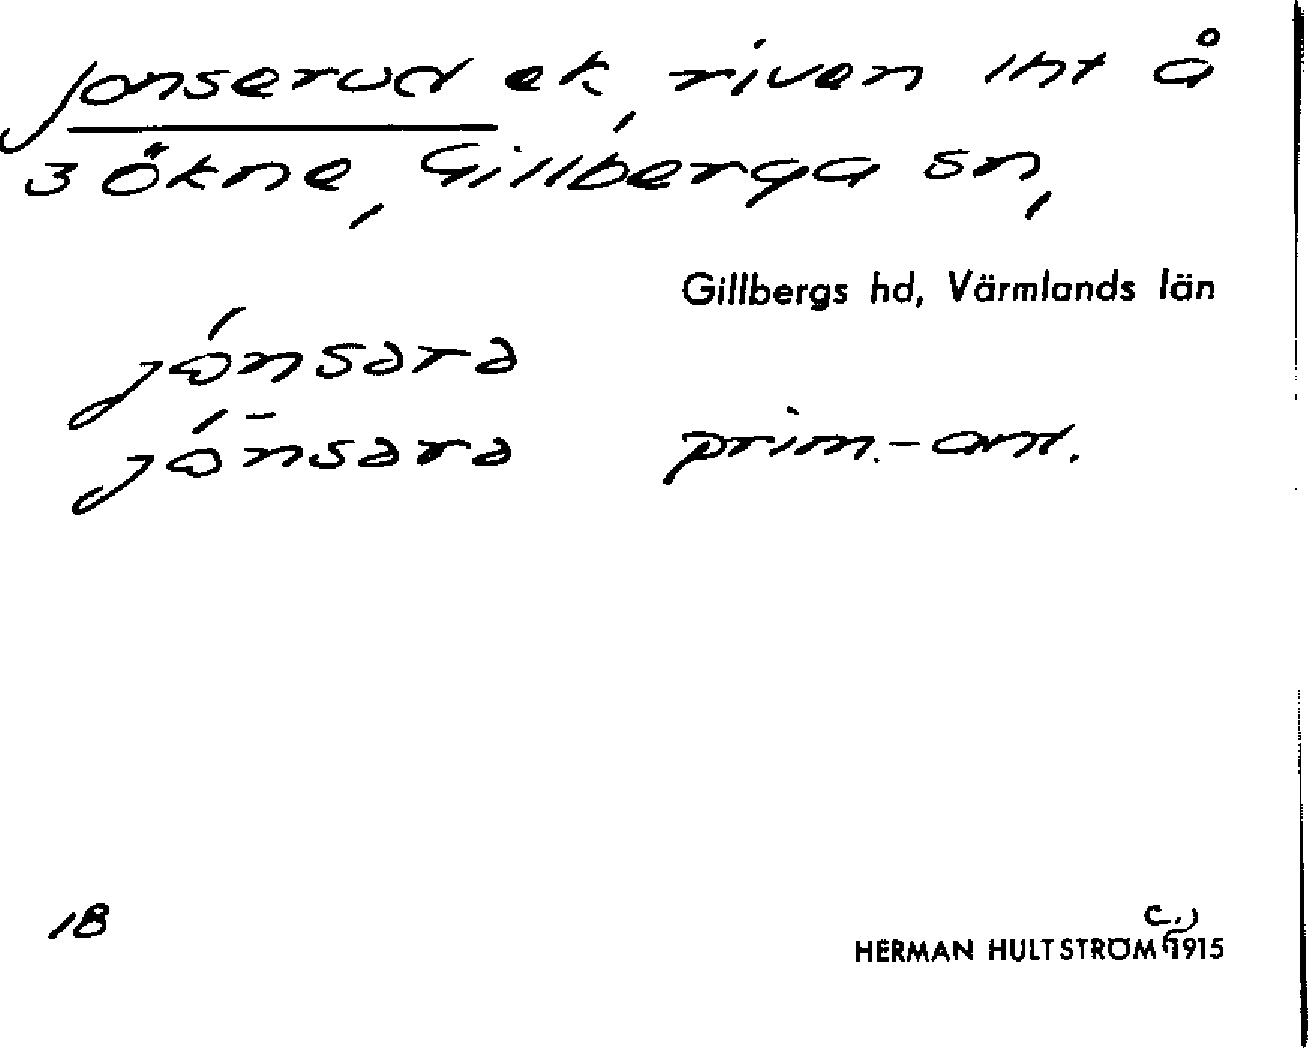 Jonserud ek, riven lht å
3 Ökne, Gillberga sn,
Gillbergs hd, Värmlands län
jónsara
jónsara prim.-ant.
18
HERMAN HULTSTRÖM c.) 1915